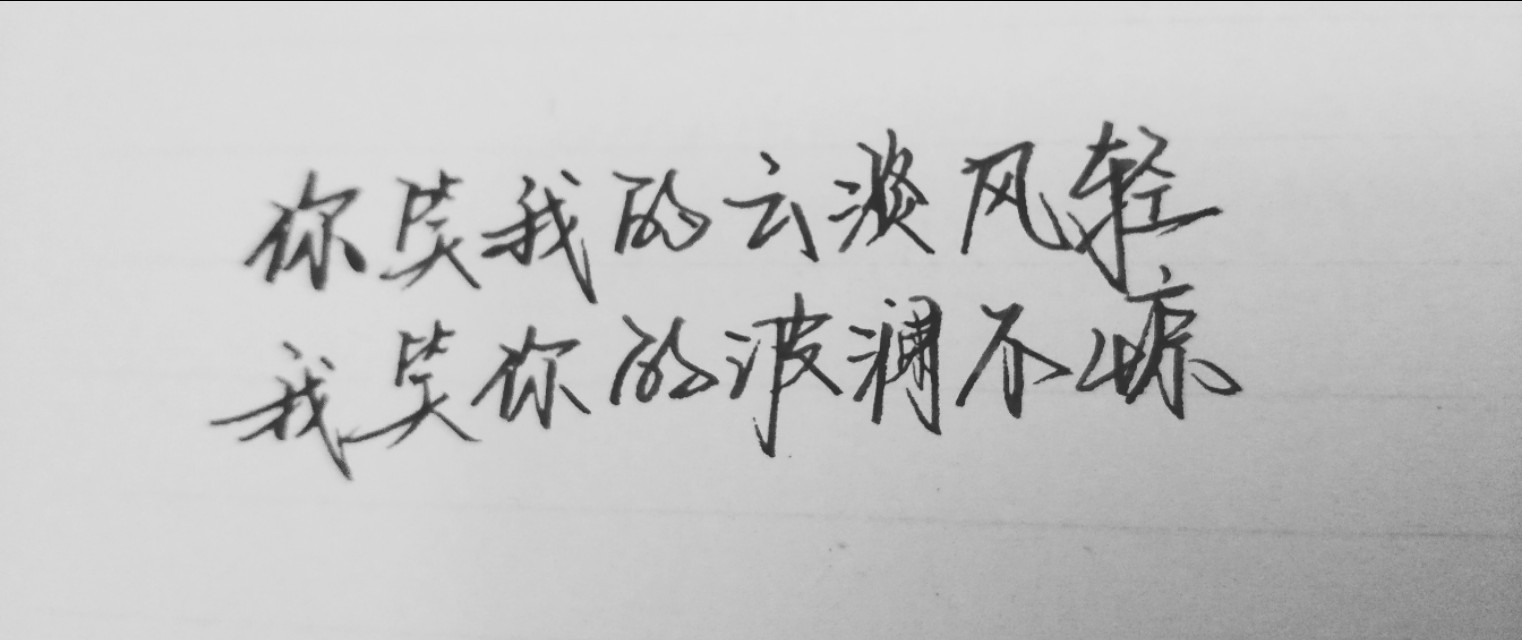 你笑我的云淡风轻
我笑你的波澜不惊